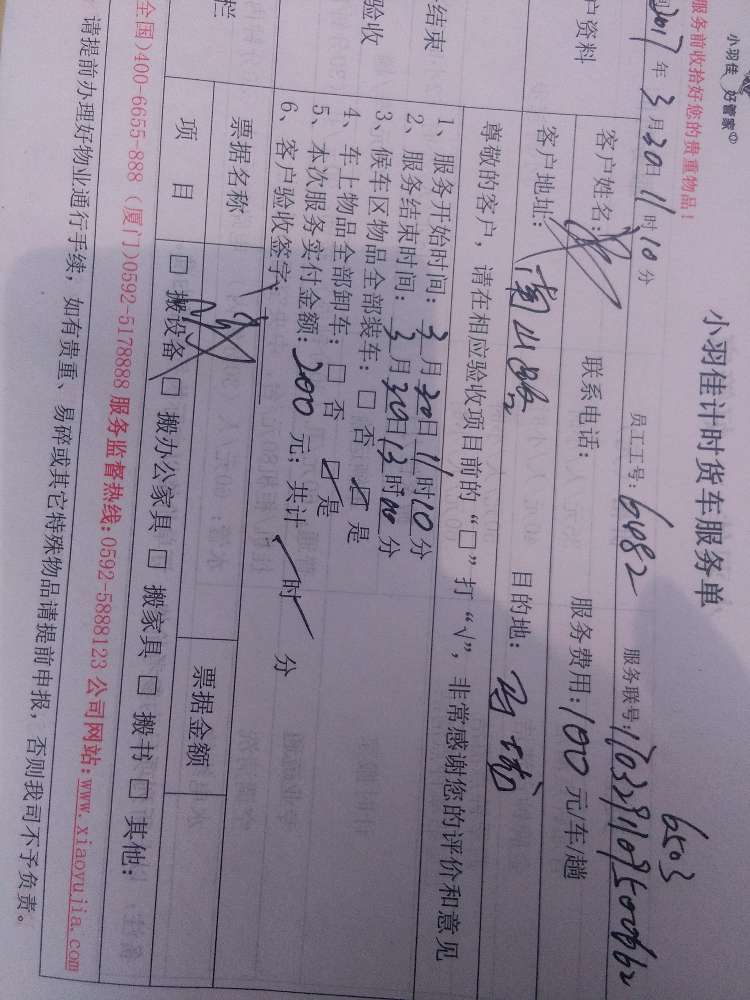 小羽佳 好管家
小羽佳计时货车服务单
服务前收拾好您的贵重物品！
员工工号：6482 服务联号：
6503
2017年3月30日11时10分
户资料
客户姓名： 联系电话： 服务费用：100元/车/趟
客户地址：南山路 目的地：
尊敬的客户，请在相应验收项目前的“□”打“√”，非常感谢您的评价和意见
结束
验收
1、服务开始时间：3月30日11时10分
2、服务结束时间：3月30日13时00分
3、候车区物品全部装车：□ 否 ☑ 是
4、车上物品全部卸车：□ 否 ☑ 是
5、本次服务实付金额：200元；共计 时 分
6、客户验收签字：
栏
票据名称 票据金额
项 目 □ 搬设备 □ 搬办公家具 □ 搬家具 □ 搬书 □ 其他：
全国)400-6655-888 (厦门)0592-5178888 服务监督热线:0592-5888123 公司网站:www.xiaoyujia.com
请提前办理好物业通行手续，如有贵重、易碎或其它特殊物品请提前申报，否则我司不予负责。